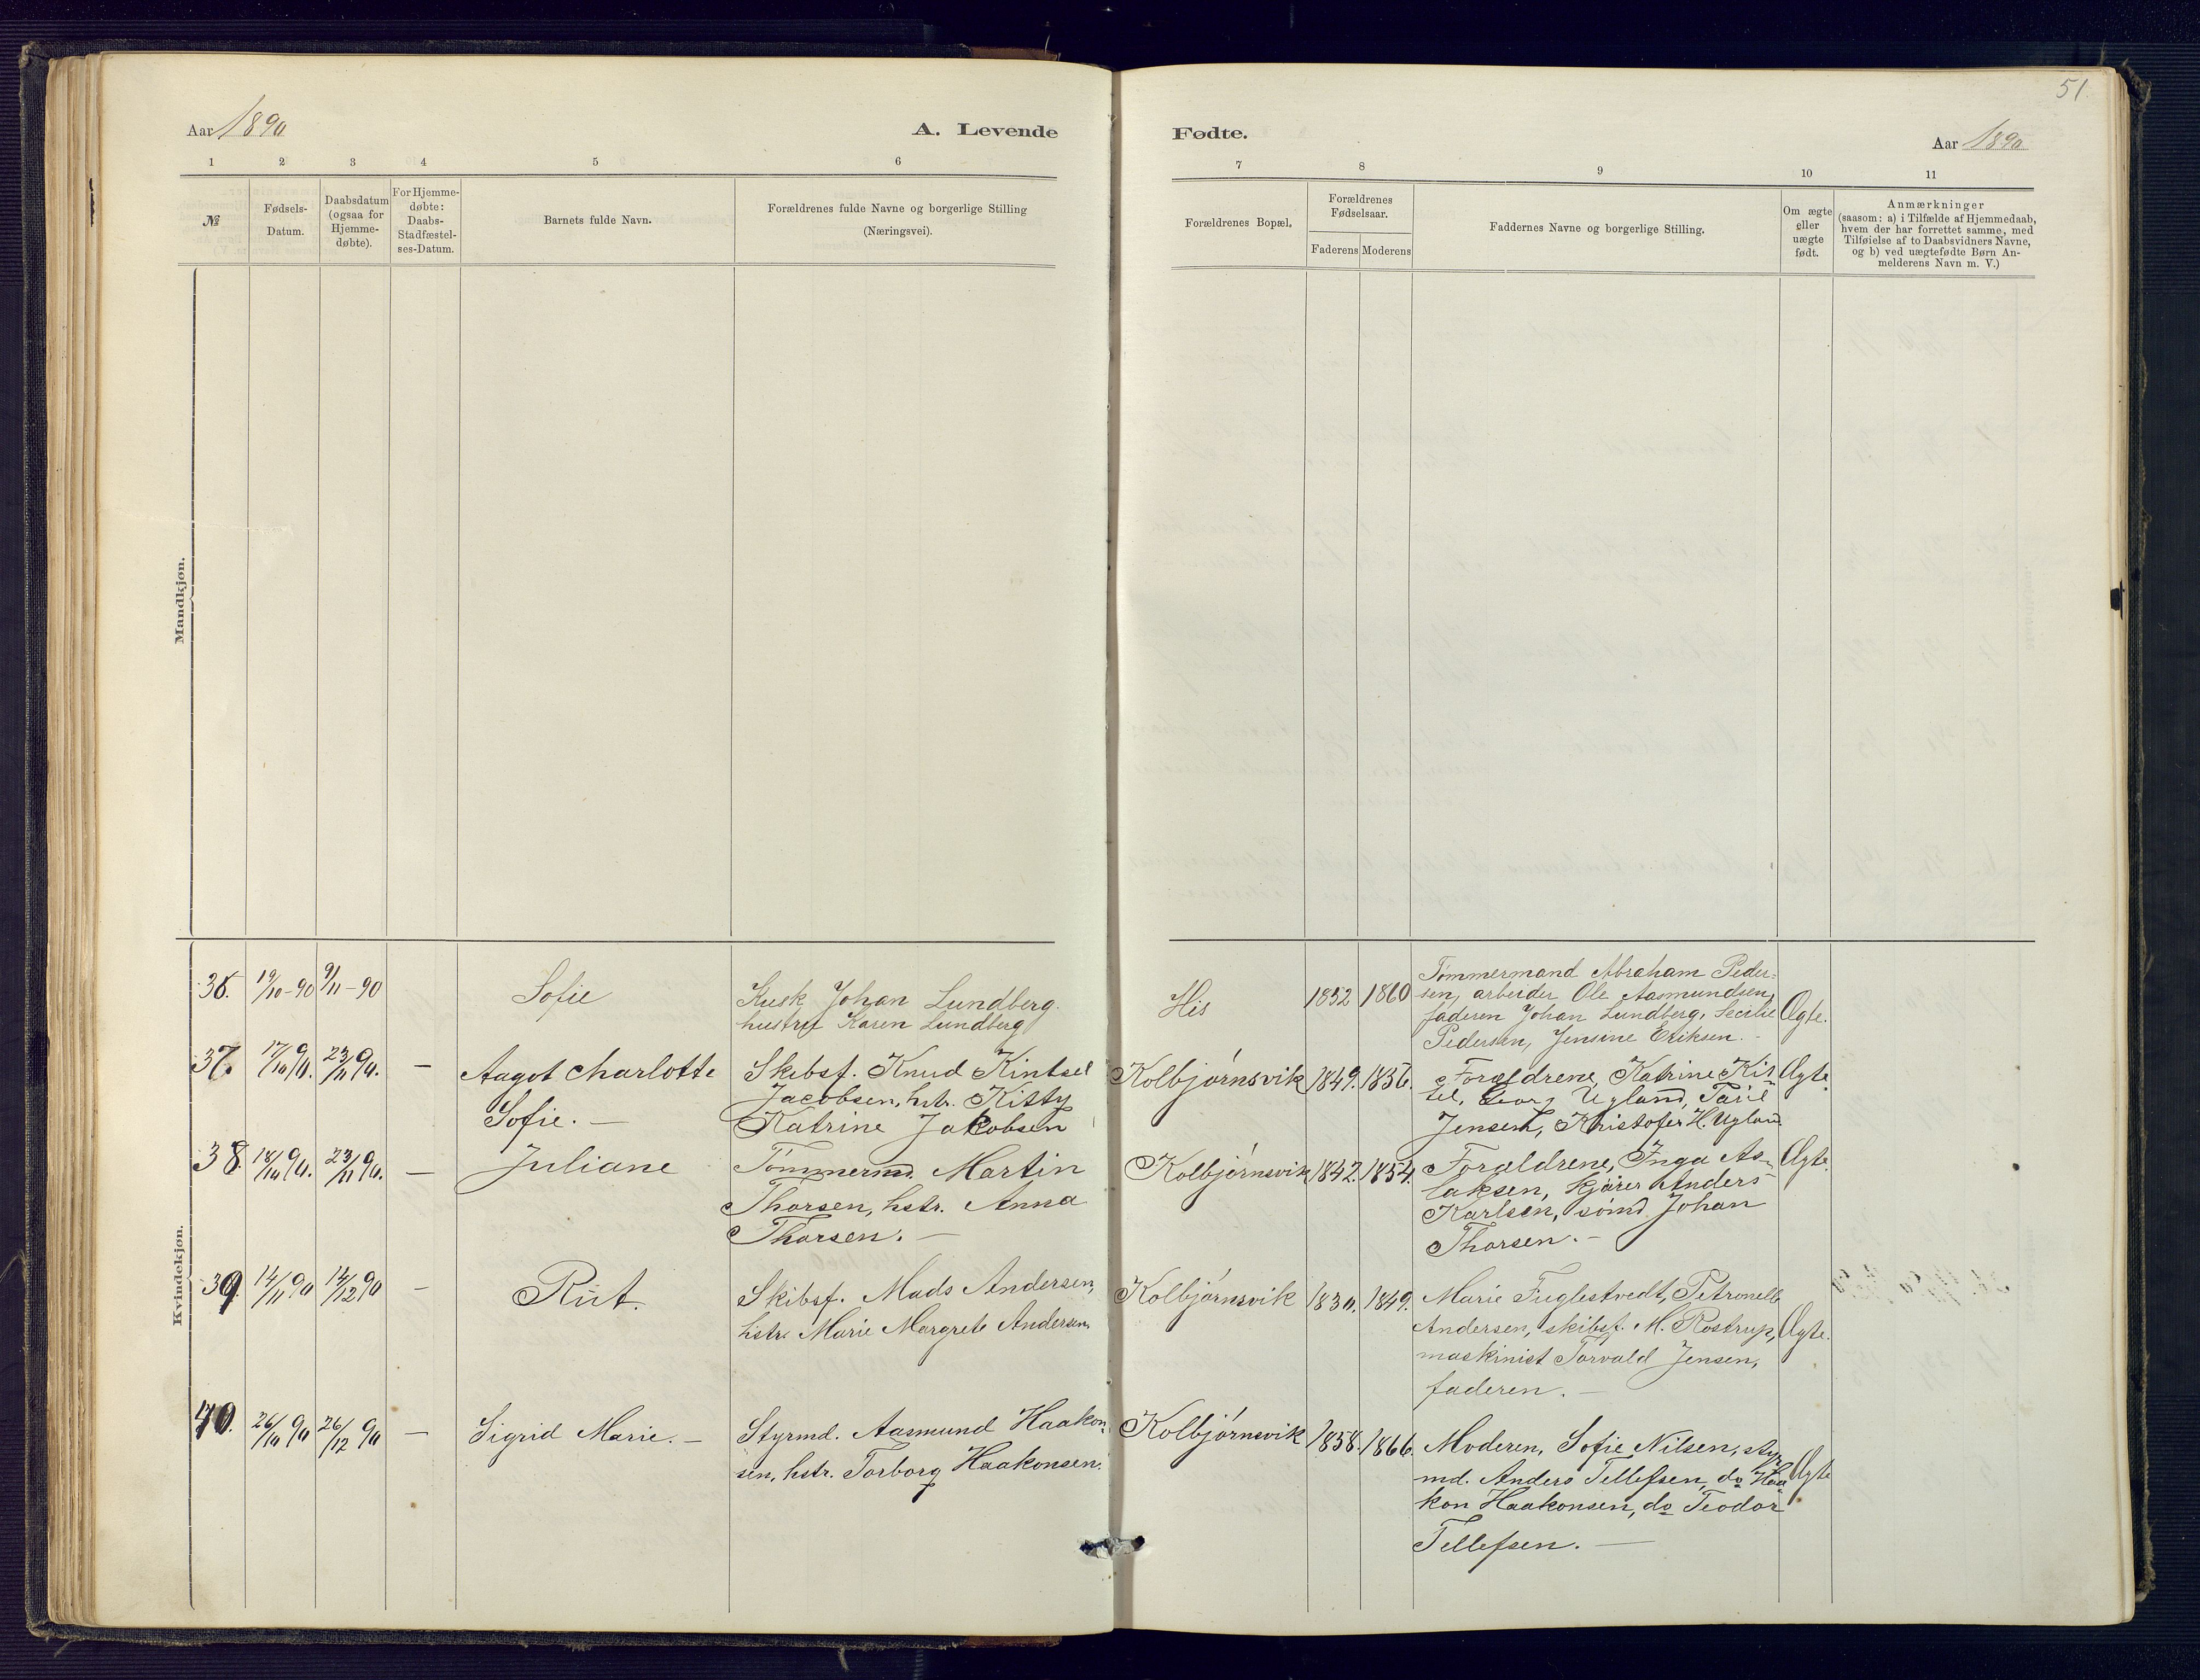 51.
Aar 1890
A. Levende
Fødte.
Aar 1890
1 2 3 4 5 6
7 8 9 10 11
№
Fødsels-
Datum.
Daabsdatum
(ogsaa for
Hjemme-
døbte).
For Hjemme-
døbte:
Daabs-
Stadfæstel-
ses-Datum.
Barnets fulde Navn.
Forældrenes fulde Navne og borgerlige Stilling
(Næringsvei).
Forældrenes Bopæl.
Forældrenes
Fødselsaar.
Faderens Moderens
Faddernes Navne og borgerlige Stilling.
Om ægte
eller
uægte
født.
Anmærkninger
(saasom: a) i Tilfælde af Hjemmedaab,
hvem der har forrettet samme, med
Tilføielse af to Daabsvidners Navne,
og b) ved uægtefødte Børn An-
melderens Navn m. V.)
Mandkjøn.
Kvindekjøn.
36. 19/10-90 9/11-90
Sofie
Kusk Johan Lundberg.
hustru Karen Lundberg
His
1852 1860
Tømmermand Abraham Peder-
sen, arbeider Ole Aasmundsen,
faderen Johan Lundberg, Secilie
Pedersen, Jensine Eriksen.
Ægte.
37. 17/10 90. 23/11 90. —
Aagot Charlotte
Sofie. —
Skibsf. Knud Kintsel
Jacobsen, hstr. Kitty
Katrine Jakobsen
Kolbjørnsvik
1849. 1856.
Forældrene, Katrine Kit-
tel, Georg Ugland, Taril
Jensen, Kristofer H. Ugland.
Ægte.
38. 18/10 90. 23/11 90. —
Juliane
Tømmermd. Martin
Thorsen, hstr. Anna
Thorsen. —
Kolbjørnsvik
1847. 1854.
Forældrene, Inga As-
laksen, kjører Anders
Karlsen, sømd. Johan
Thorsen. —
Ægte.
39. 14/11 90 14/12 90 —
Rut.
Skibsf. Mads Andersen,
hstr. Marie Margrete Andersen.
Kolbjørnsvik
1830. 1849.
Marie Fuglestvedt, Petronelle
Andersen, skibsf. M. Rostrup,
maskinist Torvald Jensen,
faderen. —
Ægte.
40. 26/10 90 26/12 90 —
Sigrid Marie. —
Styrmd. Aasmund Haakon-
sen, hstr. Torborg Haakonsen.
Kolbjørnsvik
1858. 1866.
Moderen, Sofie Nilsen, styr
md. Anders Tellefsen, do Haa
kon Haakonsen, do Teodor
Tellefsen. —
Ægte